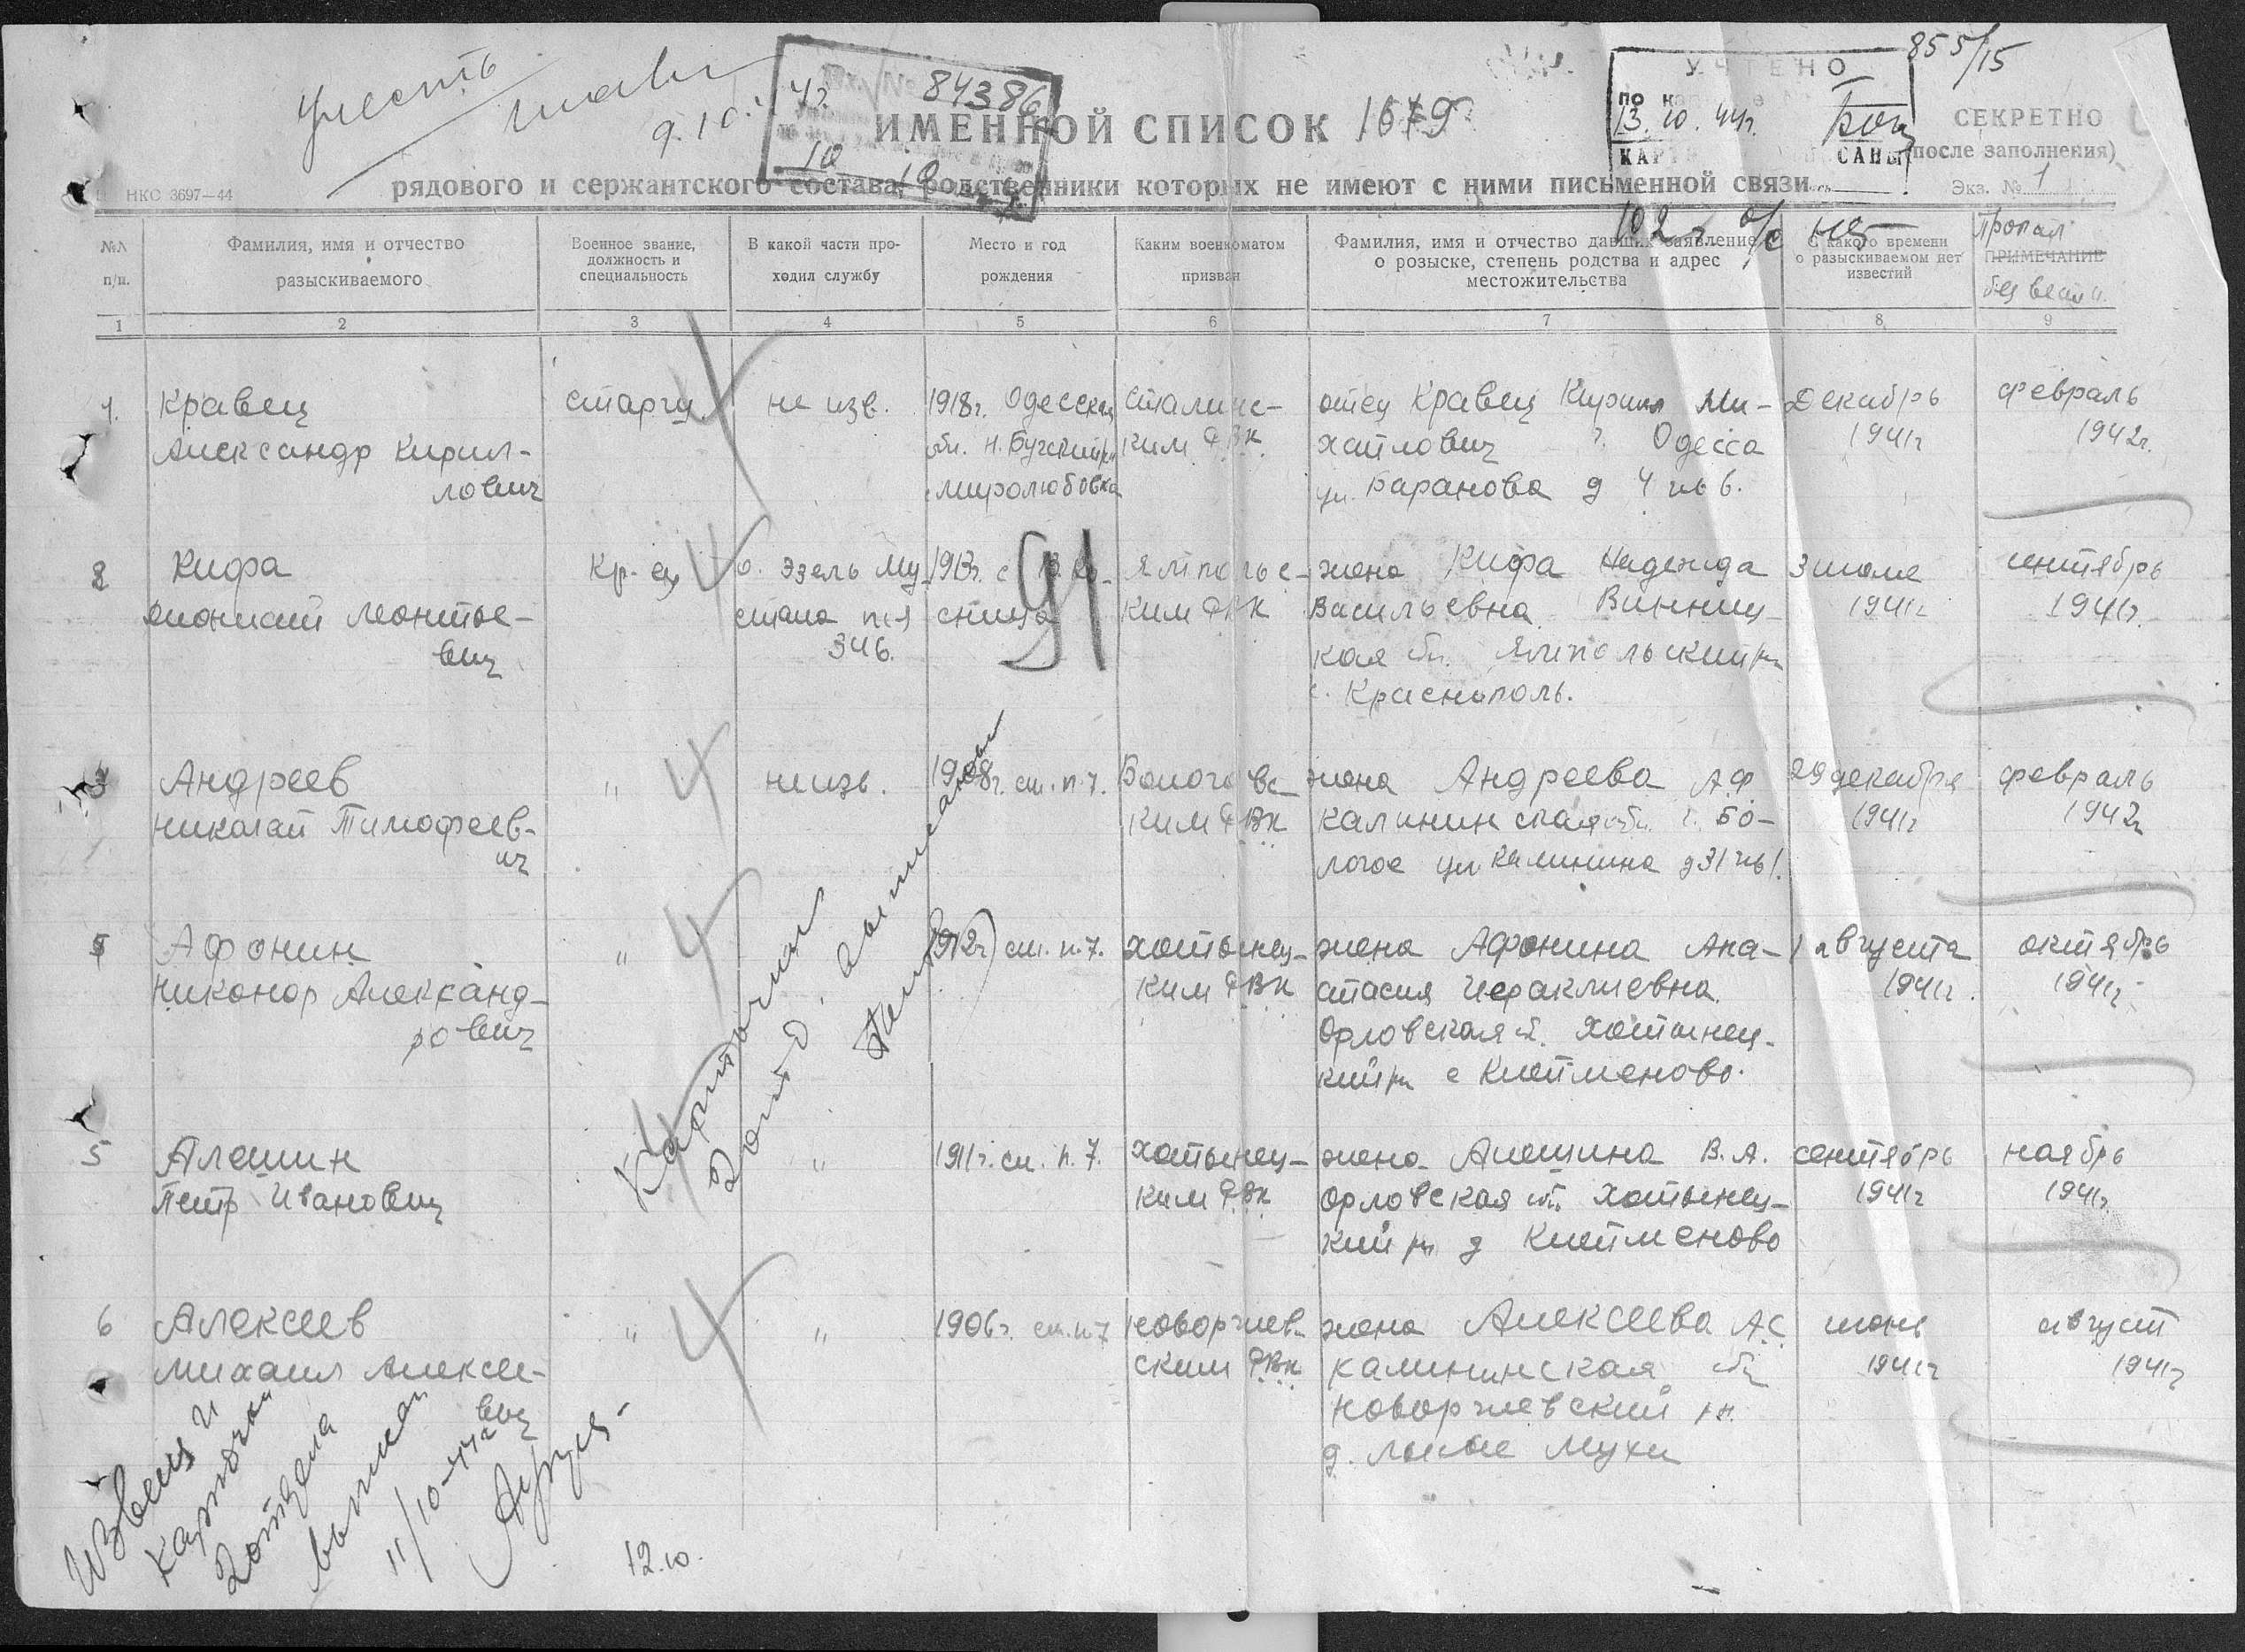 Учесть
9.10.
Вх. №
84386
УЧТЕНО
13.10.44г.
855/15
ИМЕННОЙ СПИСОК 1679
СЕКРЕТНО
(после заполнения)
Экз. № 1
НКО 3697—44
рядового и сержантского состава, родственники которых не имеют с ними письменной связи
№№ п/п.
Фамилия, имя и отчество разыскиваемого
Военное звание, должность и специальность
В какой части проходил службу
Место и год рождения
Каким военкоматом призван
Фамилия, имя и отчество давших заявление о розыске, степень родства и адрес местожительства
С какого времени о разыскиваемом нет известий
ПРИМЕЧАНИЕ
Пропал без вести
1 2 3 4 5 6 7 8 9
1. Кравец
Александр Кирил-
лович
не изв.
1918г. Одесская
обл. Н.Бугский рн
с. Миролюбовка
Сталинс-
ким РВК
отец Кравец Кирилл Ми-
хайлович г. Одесса
ул. Баранова д 4 кв 6.
Декабрь
1941г
февраль
1942г.
2 Кифа
Дионисий Леонтье-
вич
Кр-ец
о. Эзель
п/я
346.
Ямпольс-
ким РВК
жена Кифа Надежда
Васильевна Винниц-
кая обл. Ямпольский рн
с. Краснополь.
3 июля
1941г
сентябрь
1941г.
91
3 Андреев
Николай Тимофеев-
ич
"
не изв.
1908г. см. п. 7.
Бологовс-
ким РВК
жена Андреева А.Ф.
Калининская обл. г. Бо-
логое ул Калинина д 31 кв 1.
29 декабря
1941г
февраль
1942г
Афонин
Никонор Александ-
рович
"
1912г см. п. 7.
Хотынец-
ким РВК
жена Афонина Ана-
стасия Ираклиевна
Орловская о. Хотынец-
кий рн с
1 августа
1941г.
октябрь
1941г
5 Алешин
Петр Иванович
"
1911г. см. п. 7.
Хотынец-
ким РВК
жена Алешина В.А.
Орловская обл. Хотынец-
кий рн д
сентябрь
1941г
ноябрь
1941г.
6 Алексеев
Михаил Алексе-
евич
"
"
1906г. см. п. 7
Новоржев-
ским РВК
жена Алексеева А.С
Калининская обл
Новоржевский рн.
д. Мухи
июнь
1941г
август
1941г
Карточки
2 отд. выписаны
Извещ и
карточки
2 отдела
выписан
11/10-44г
12.10.